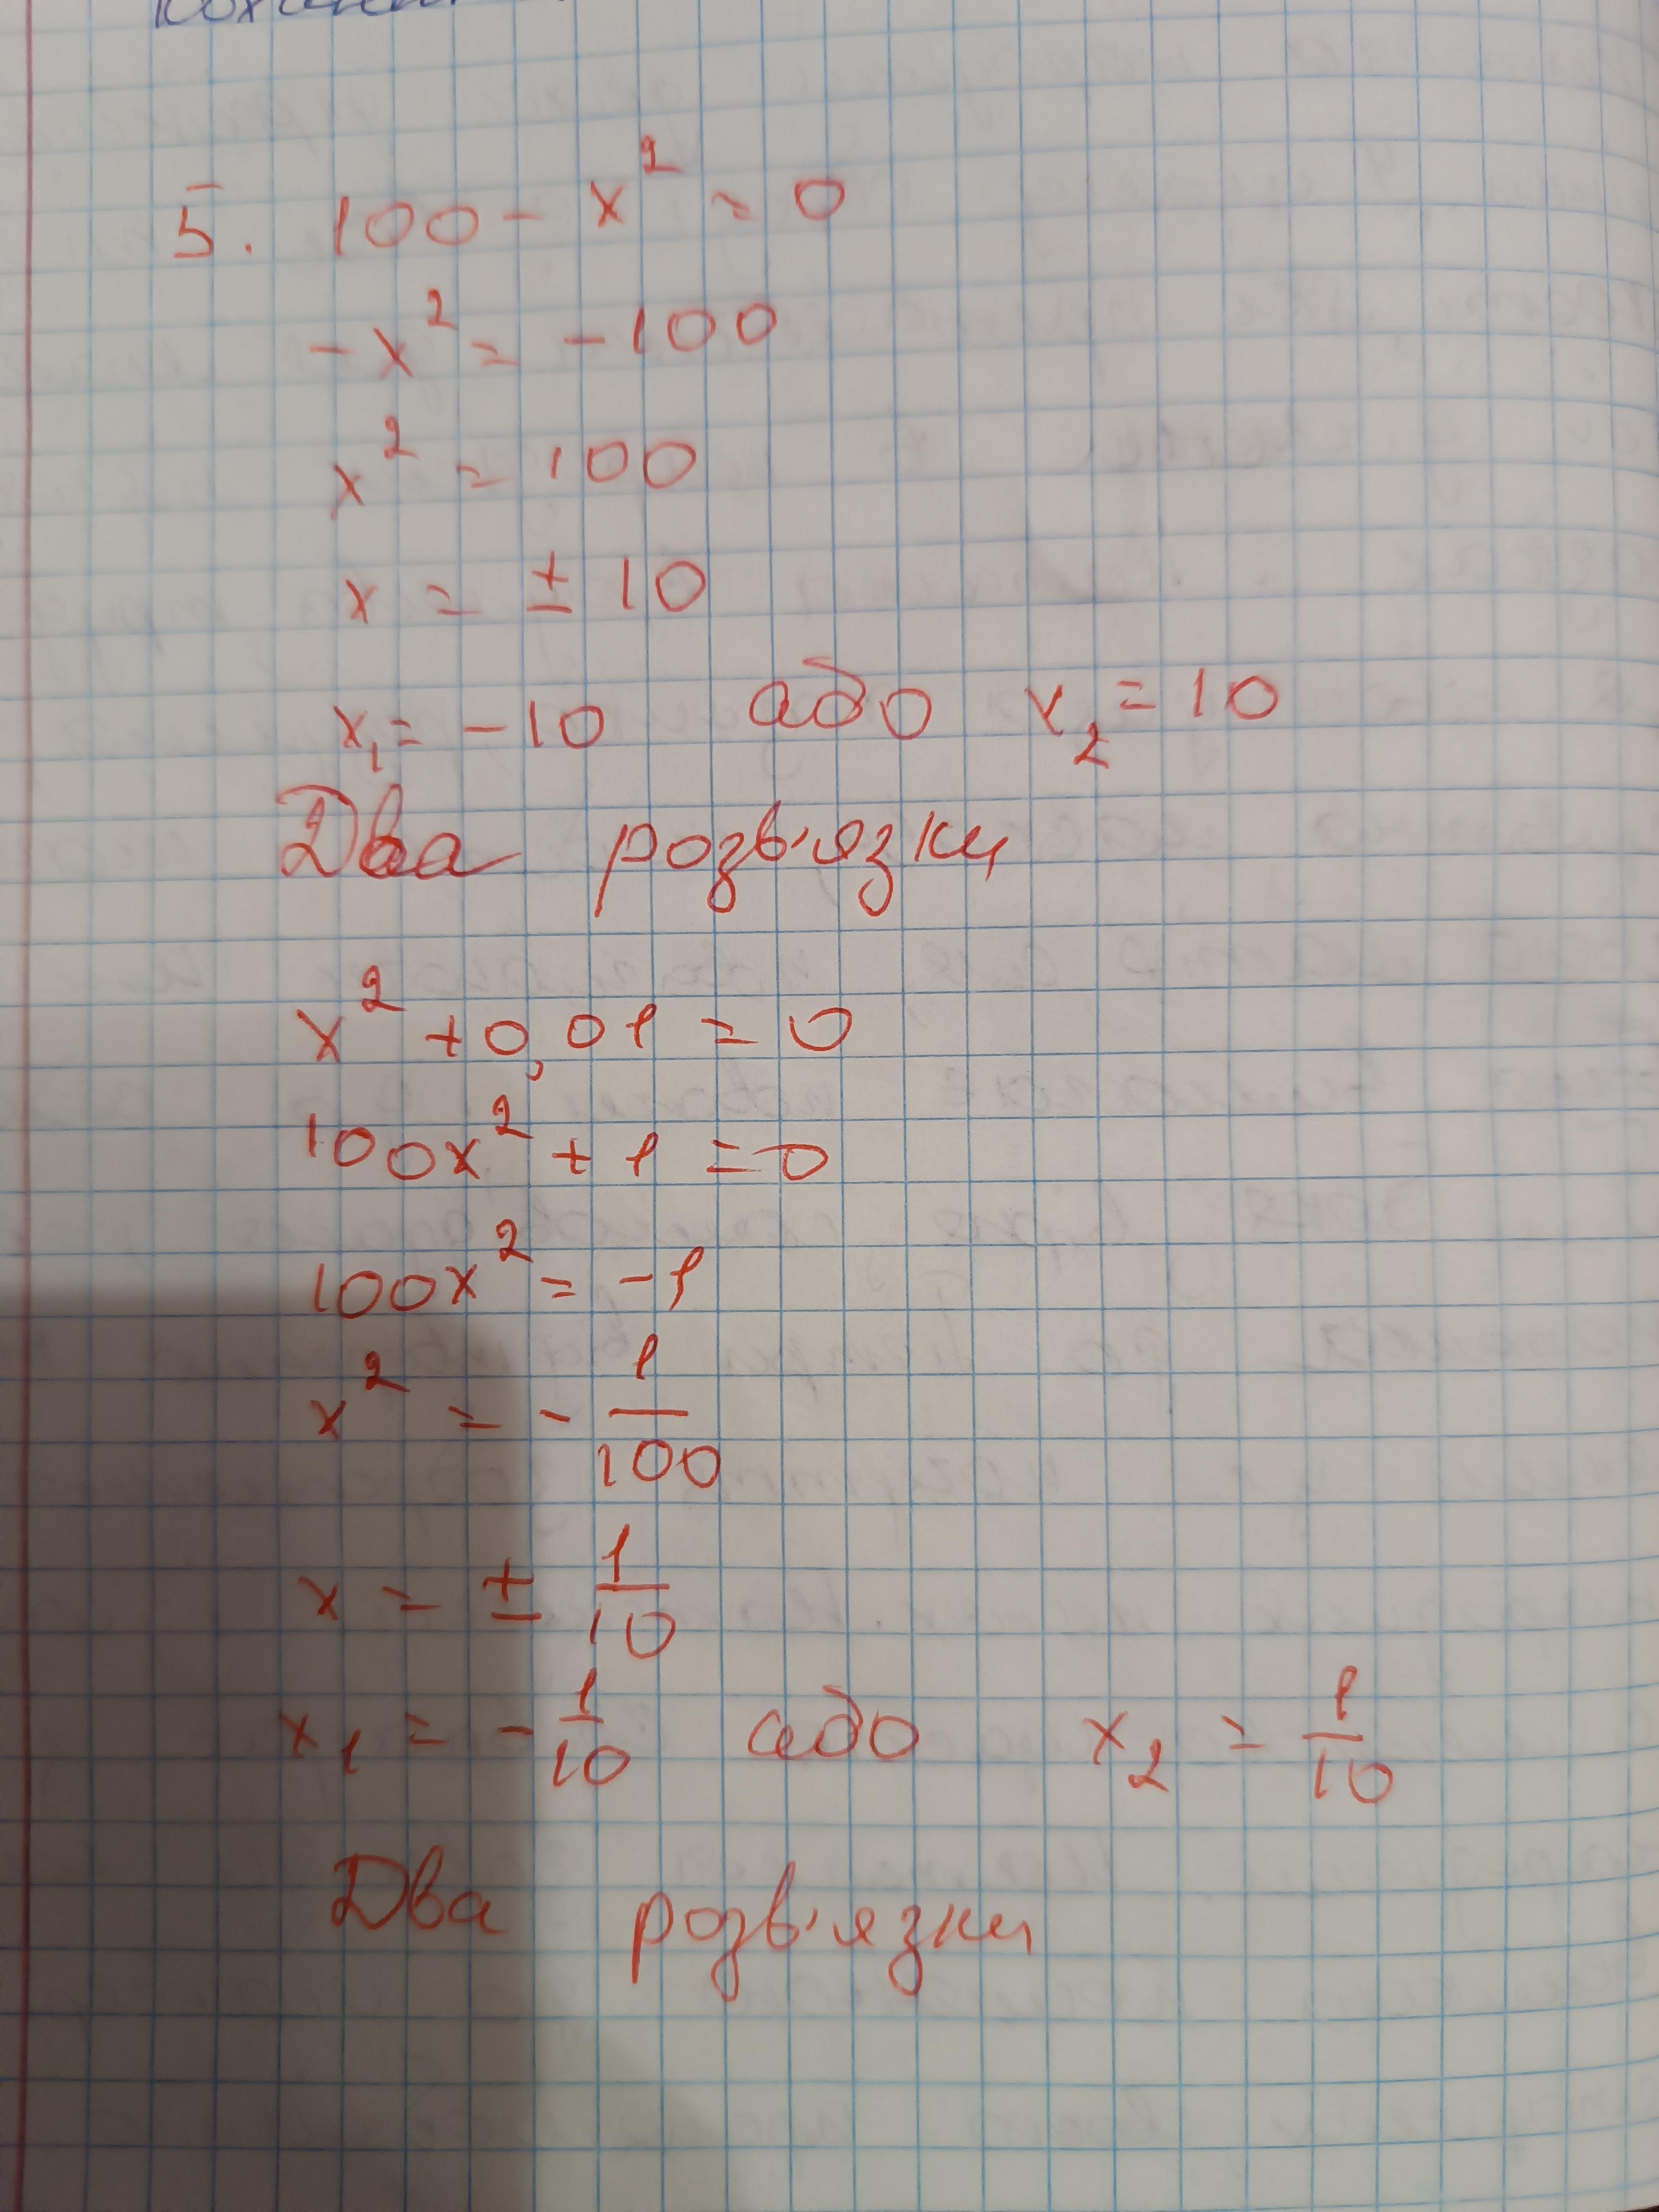 5. 100 - x² = 0
-x² = -100
x² = 100
x = ± 10
x₁ = -10 або x₂ = 10
Два розв'язки
x² + 0,01 = 0
100x² + 1 = 0
100x² = -1
x² = - 1/100
x = ± 1/10
x₁ = - 1/10 або x₂ = 1/10
Два розв'язки